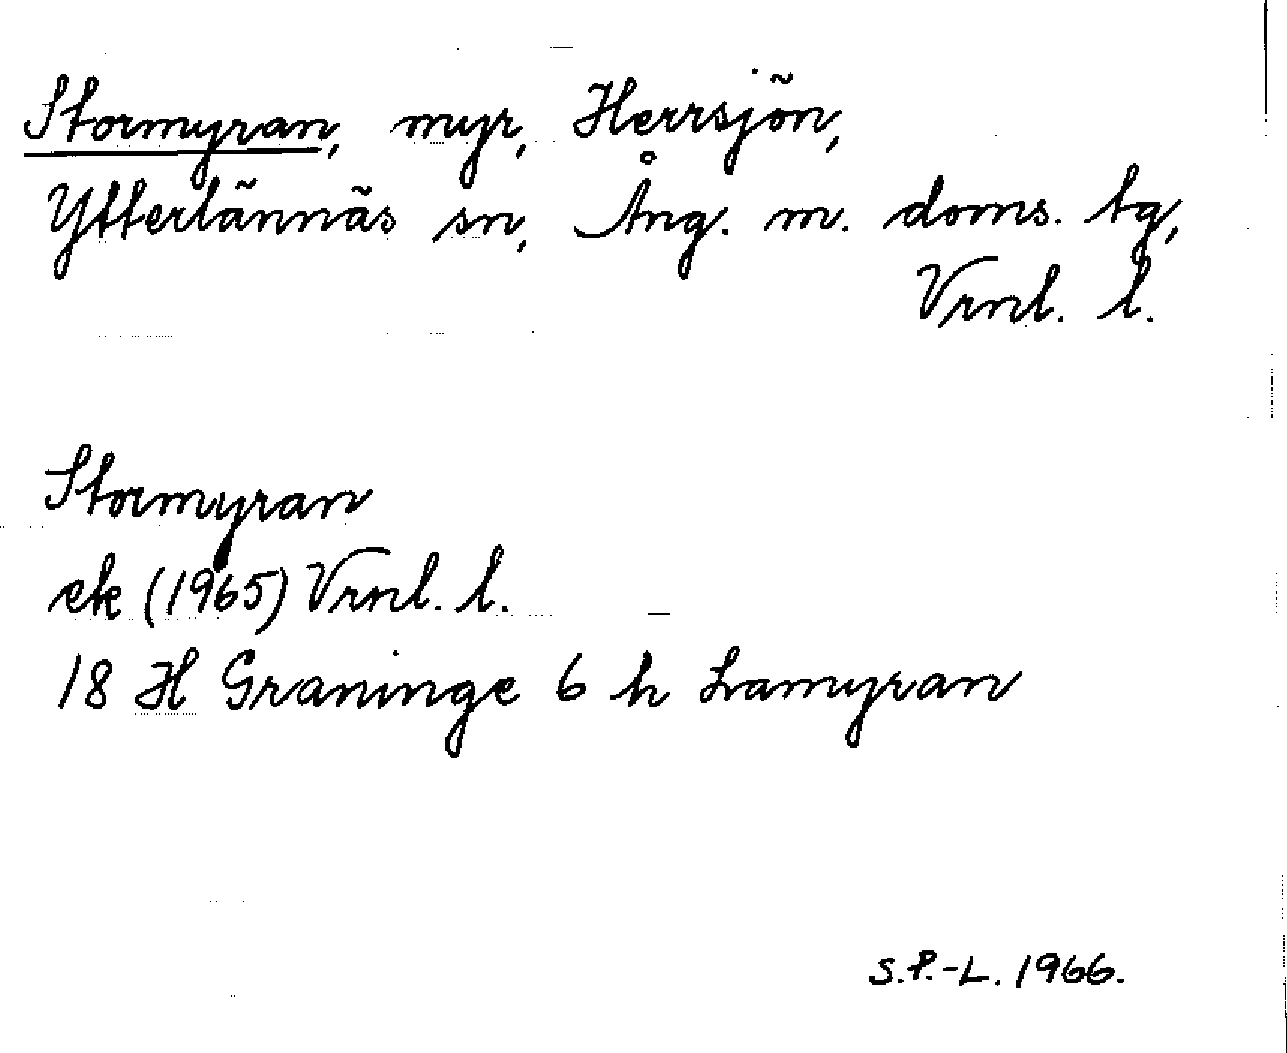 Stormyran, myr, Herrsjön,
Ytterlännäs sn, Ång. m. doms. tg,
Vrnl. l.
Stormyran
ek (1965) Vrnl. l.
18 H Graninge 6 h Lramyran
S.P.-L. 1966.